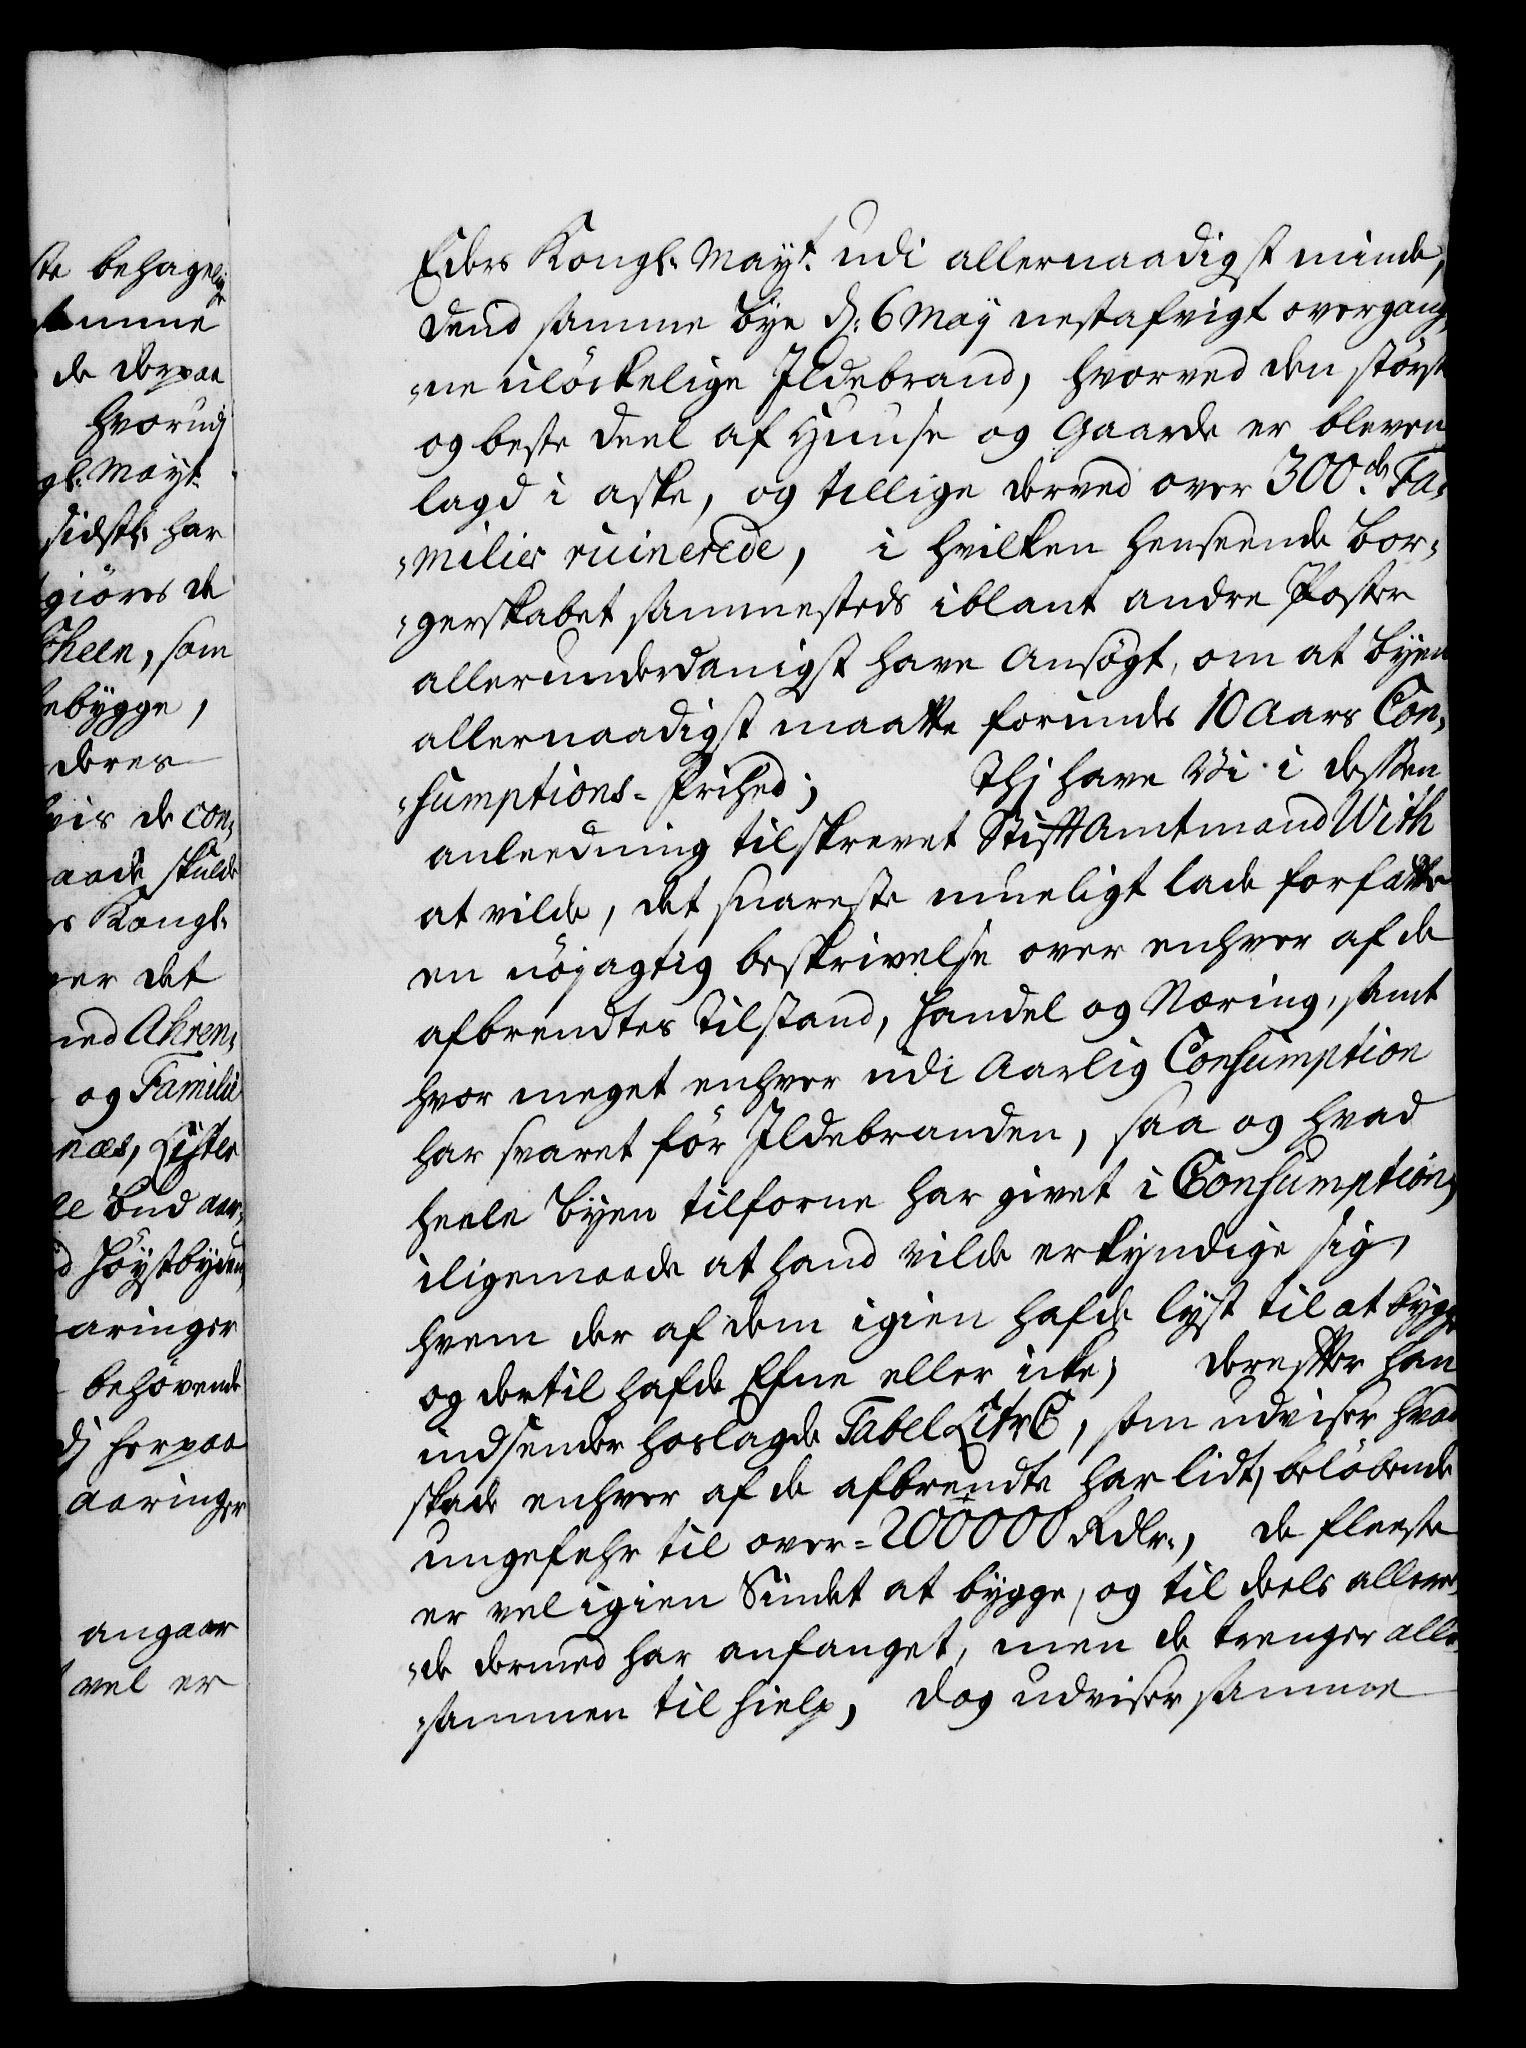 te behagelig
samme
de derpaa
hvorudj
gl: Mayt.
sidstl: har
giöres de
Theen, som
ebygge,
deres
vis de con,
aade skulde
s Kongl:
er det
ned Ahren,
og Familie
næs, Lister
le bud aar,
d höystbydend
aaringer
behövende
dj herpaa
aaringer
angaar
vel er
Eders Kongl: Mayt. udi allernaadigst minde,
dend samme bye d: 6 May nestafvigt overgang,
,ne ulöckelige Ildebrand, hvorved den störste
og beste deel af Huuse og Gaarde er bleven
lagd i aske, og tillige derved over 300de Fa,
,milier ruinerede, i hvilken henseende bor,
,gerskabet sammesteds iblant andre Poster
allerunderdanigst have ansögt, om at byen
allernaadigst maatte forundes 10 aars Con,
,sumptions-frihed; Thj have Vi i dessen
anleedning tilskrevet Stiftamtmand With
at vilde, det snareste mueligt lade forfatte
en nöjagtig beskrivelse over enhver af de
afbrendtes tilstand, handel og Næring, samt
hvor meget enhver udi aarlig Consumption
har svaret för Ildebranden, saa og hvad
heele byen tilforne har givet i Consumption,
iligemaade at hand vilde erkyndige sig,
hvem der af dem igien hafde lyst til at bygge
og dertil hafde Efne eller icke; derefter han
indsender hoslagde Tabel Litr C, som udviser hvad
skade enhver af de afbrendte har lidt, belöbende
ungefehr til over=200000 Rdlr:, de fleeste
er vel igien Sindet at bygge, og til deels allere,
,de dermed har anfanget, men de trenger alle
,sammen til hielp, dog udviser samme